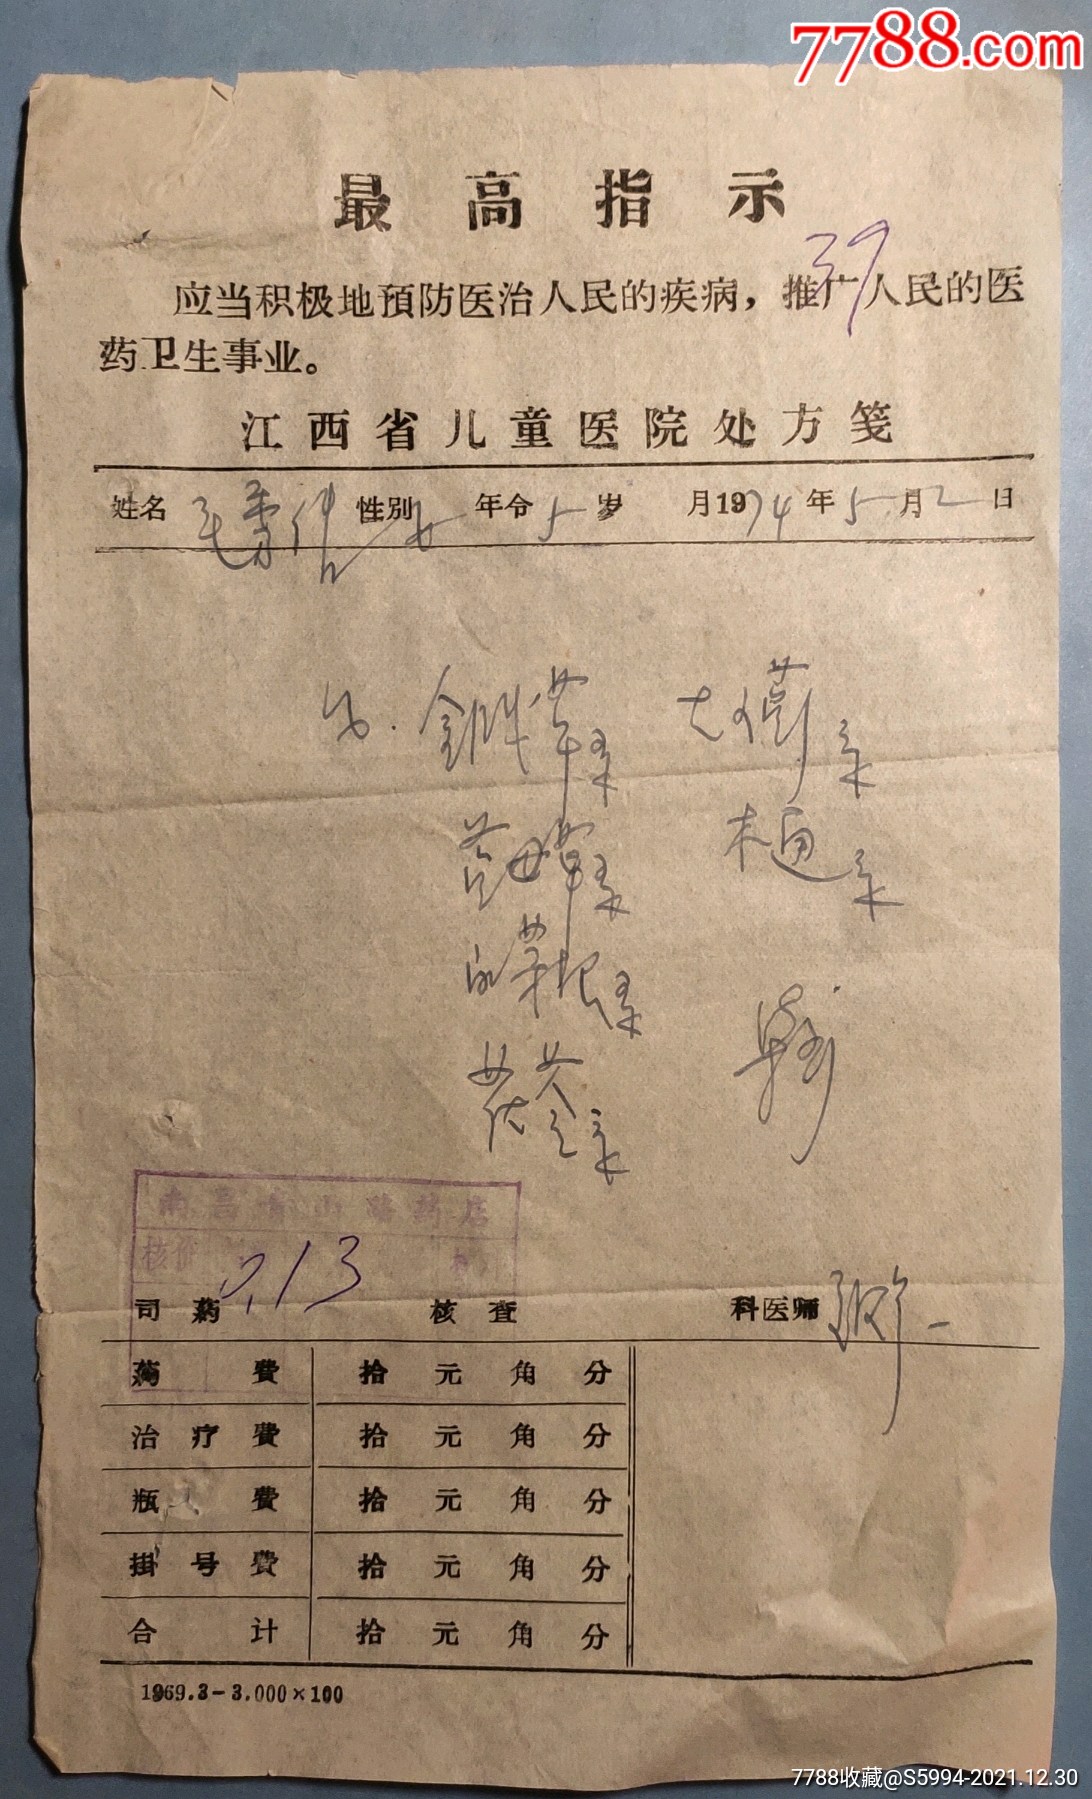 7788.com
最高指示
39
应当积极地預防医治人民的疾病，推广人民的医
药卫生事业。
江西省儿童医院处方笺
姓名 性别 女 年令 5 岁 月1974年5月2日
金钱草
大蓟
益母草
木通
白茅根
茯苓
南昌青山路药店
核价 0.13
司药 核查 科医师
药费 拾元角分
治疗费 拾元角分
瓶费 拾元角分
掛号费 拾元角分
合计 拾元角分
1969.3-3.000×100
7788收藏@S5994-2021.12.30